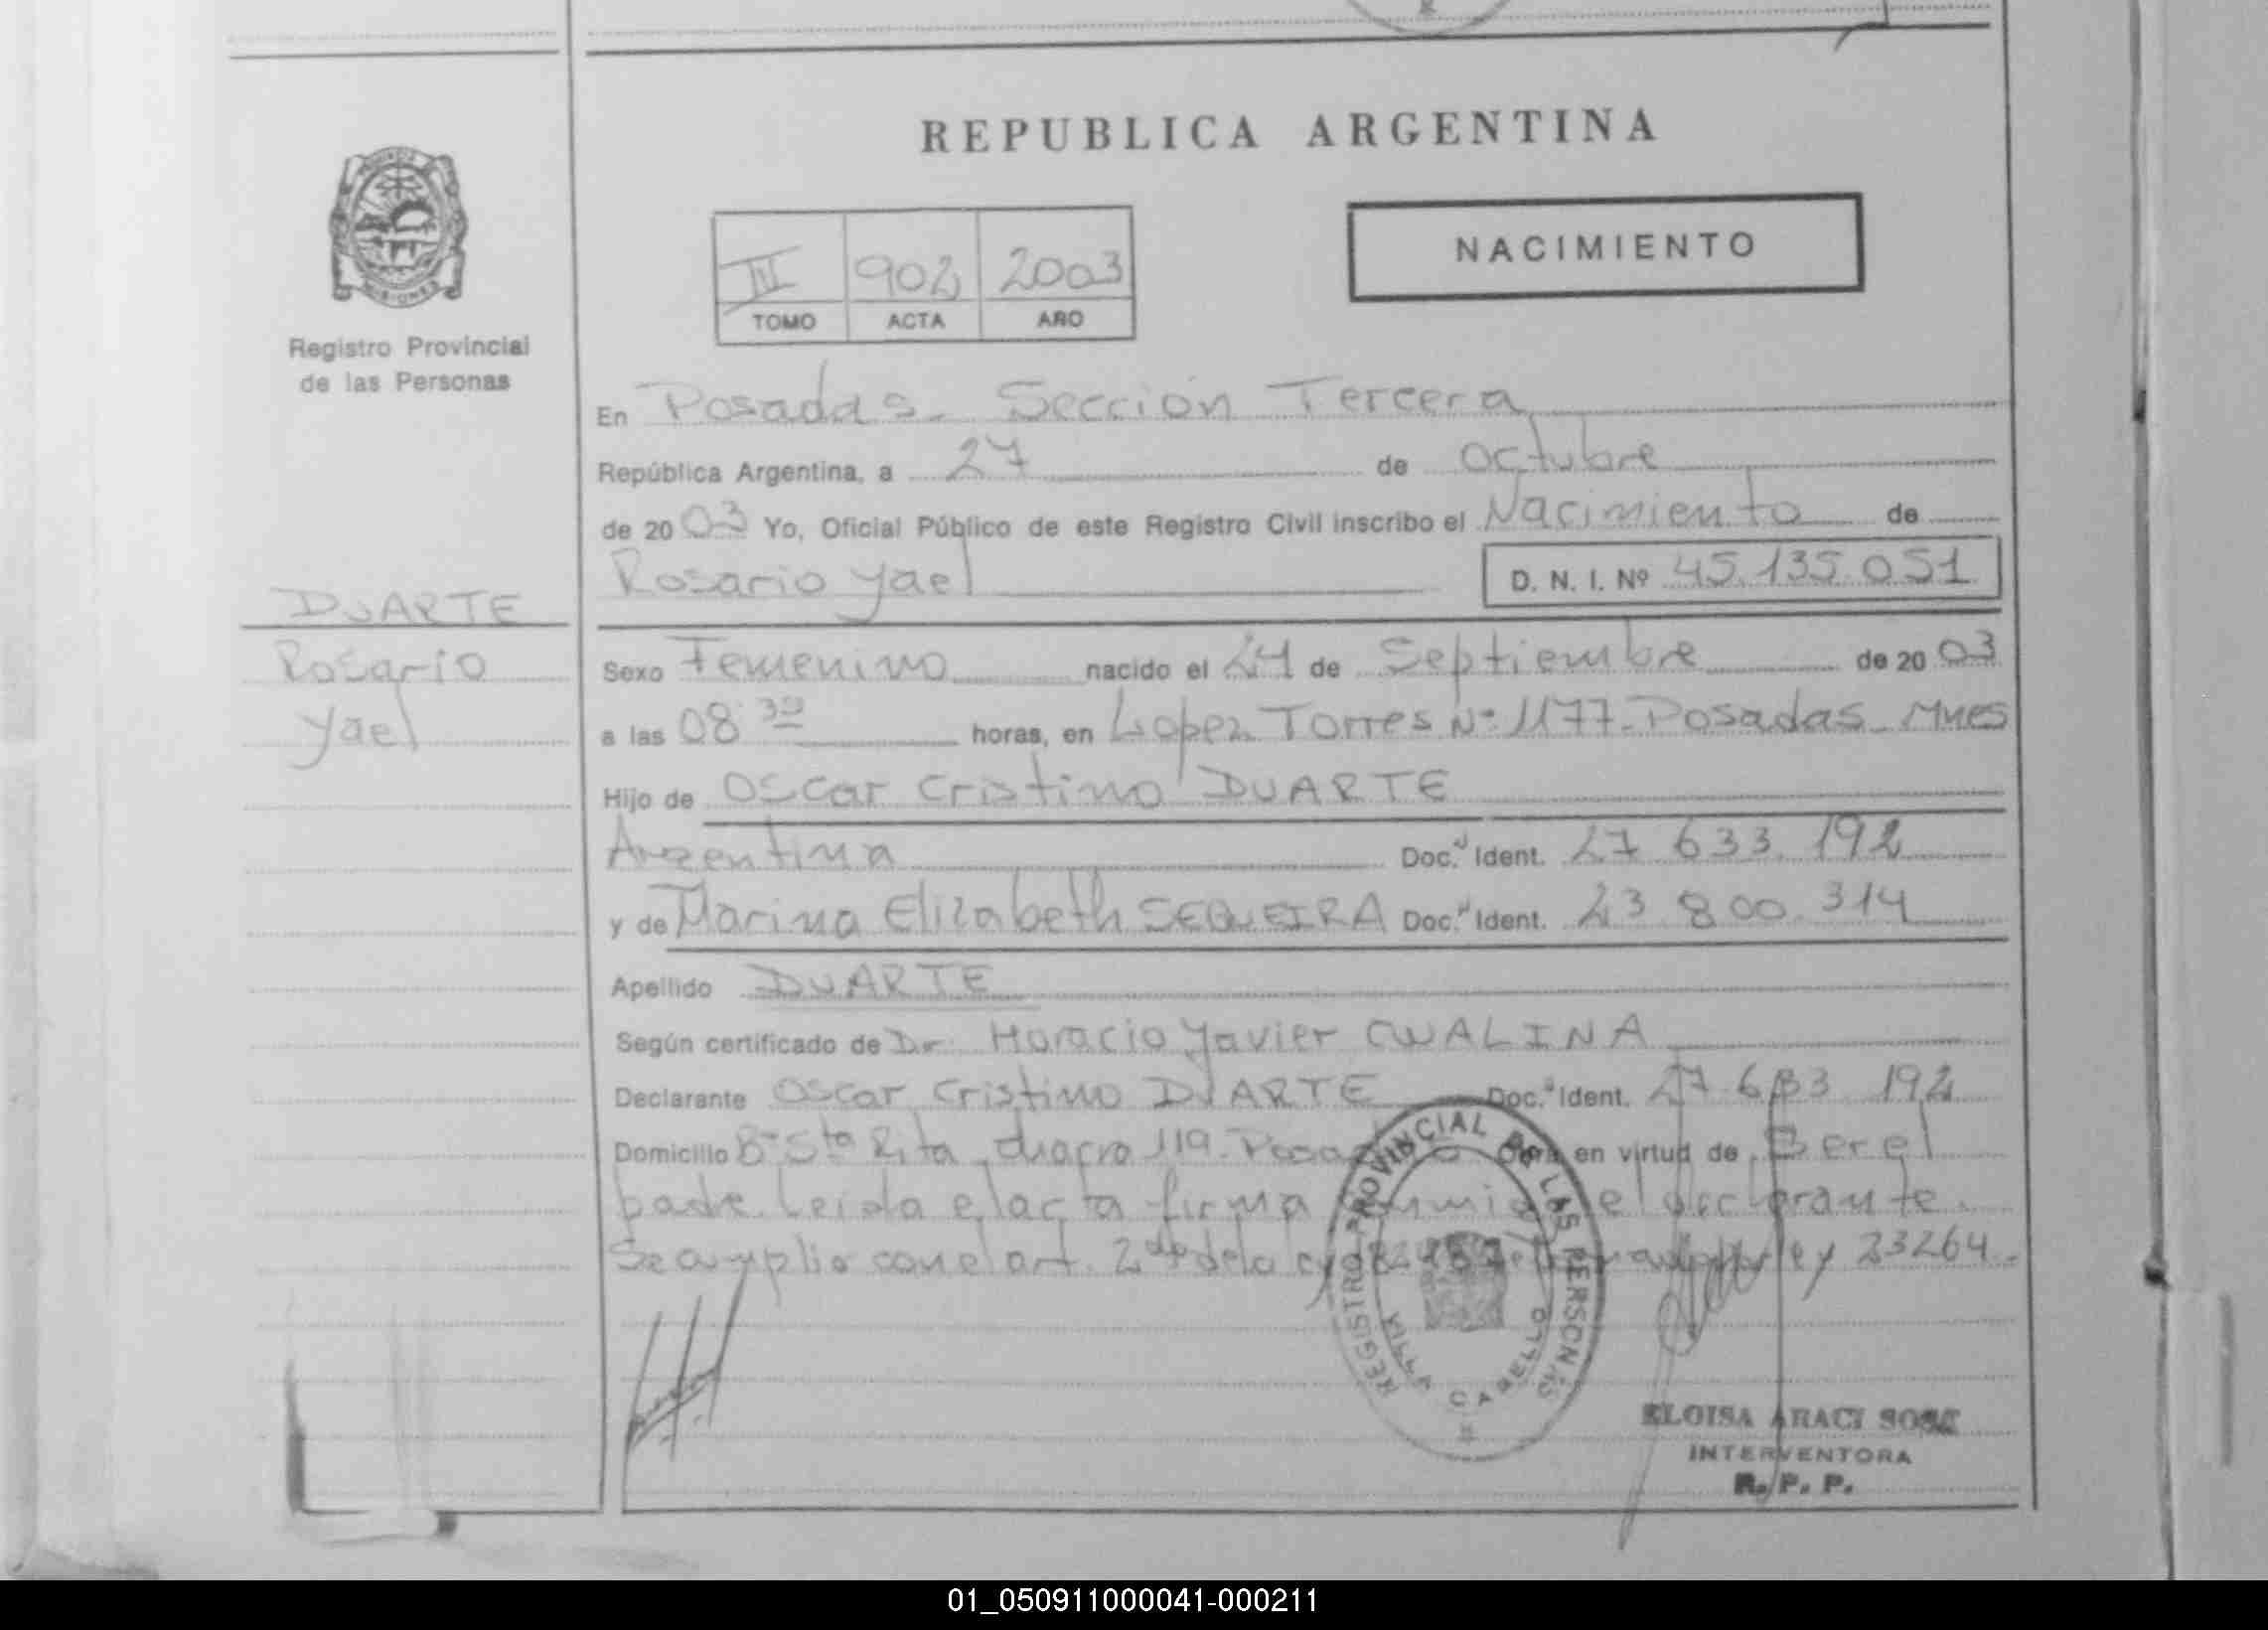 REPUBLICA ARGENTINA
MISIONES
Registro Provincial
de las Personas
902 2003
TOMO ACTA AÑO
NACIMIENTO
En Posadas. Sección Tercera
República Argentina, a 27 de Octubre
de 2003 Yo, Oficial Público de este Registro Civil inscribo el Nacimiento de
Rosario Yael D. N. I. Nº 45.135.051
DUARTE
Rosario
Yael
Sexo Femenino nacido el 24 de Septiembre de 2003
a las 08 30 horas, en Lopez Torres Nº 1177-Posadas-Mnes
Hijo de Oscar Cristino DUARTE
Argentina Doc. Ident. 27 633 192
y de Marina Elizabeth SEQUEIRA Doc. Ident. 23 800 314
Apellido DUARTE
Según certificado de Dr. Horacio Javier CWALINA
Declarante Oscar Cristino DUARTE Doc. Ident. 27 633 192
Domicilio Bº Sta Rita chacra 119-Posadas Obra en virtud de Ser el
padre. Leída el acta firma conmigo el declarante.
Se amplio con el art. 2º de la ley 23264.
REGISTRO PROVINCIAL DE LAS PERSONAS
VILLA CABELLO
ELOISA ARACI SOSA
INTERVENTORA
R. P. P.
01_050911000041-000211